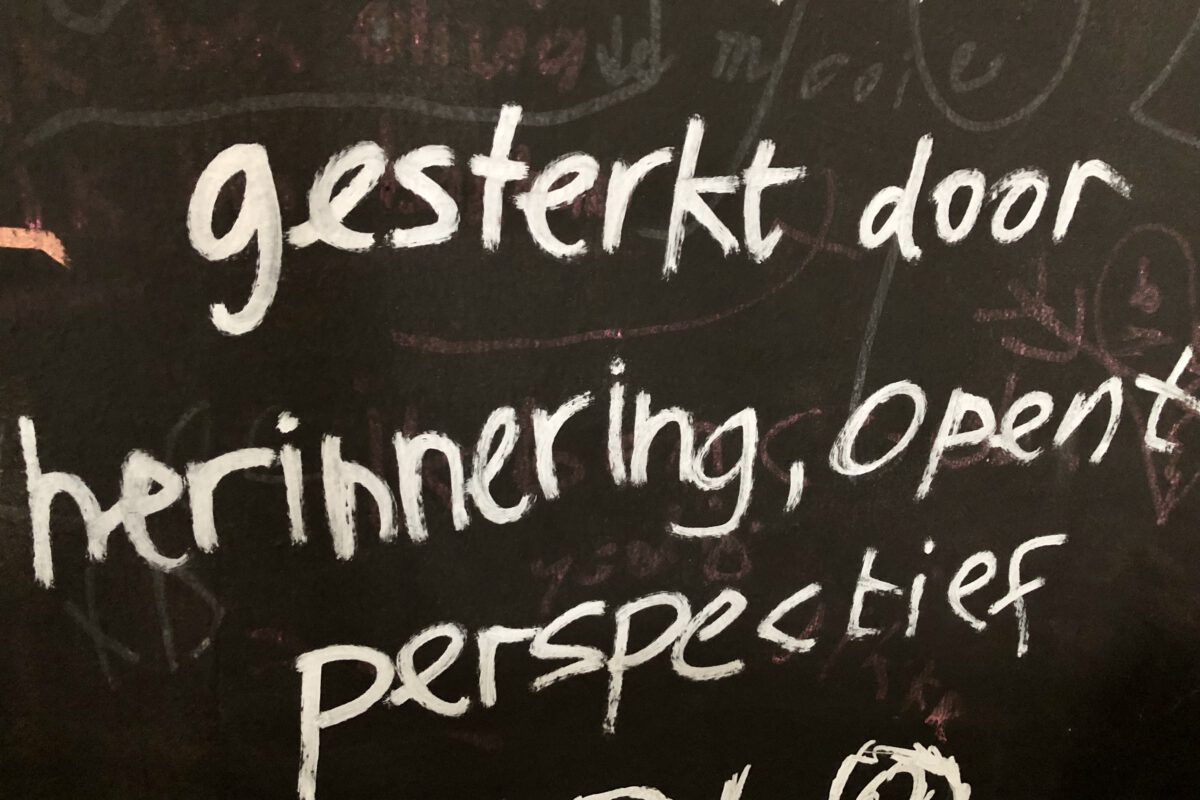 gesterkt door
herinnering, opent
perspectief